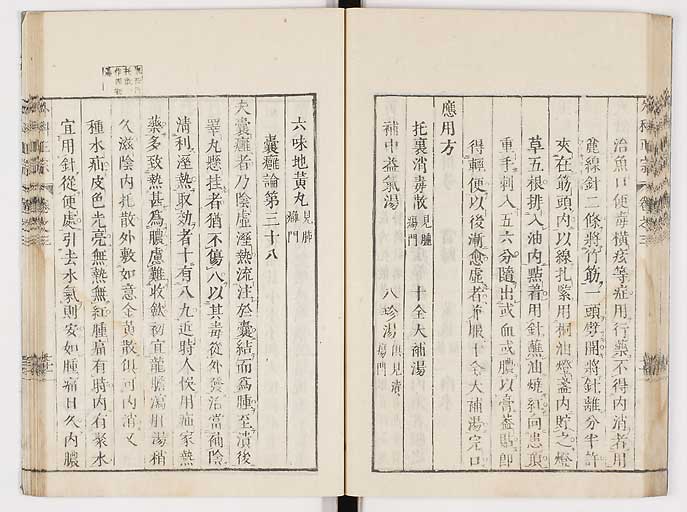 治魚口便毒橫痃等症用行藥不得內消者用
麄線針二條將竹筋一頭劈開將針離分半許
夾在筋頭內以線扎緊用桐油燈盞內貯之燈
草五根排入油內點着用針蘸油燒紅向患頂
重手刺入五六分隨出或血或膿以膏蓋貼即
得輕便以後漸愈虛者兼服十全大補湯完口
應用方
托裏消毒散見腫瘍門 十全大補湯
補中益氣湯 八珍湯俱見潰瘍門
六味地黃丸見腫瘍門
囊癰論第三十八
夫囊癰者乃陰虛溼熱流注於囊結而爲腫至潰後
睪丸懸挂者猶不傷人以其毒從外發治當補陰
清利溼熱取効者十有八九近時人悞用疝家熱
藥多致熱甚爲膿慮難收斂初宜龍膽瀉肝湯稍
久滋陰內托散外敷如意金黃散俱可內消又
種水疝皮色光亮無熱無紅腫痛有時內有聚水
宜用針從便處引去水氣則安如腫痛日久內膿